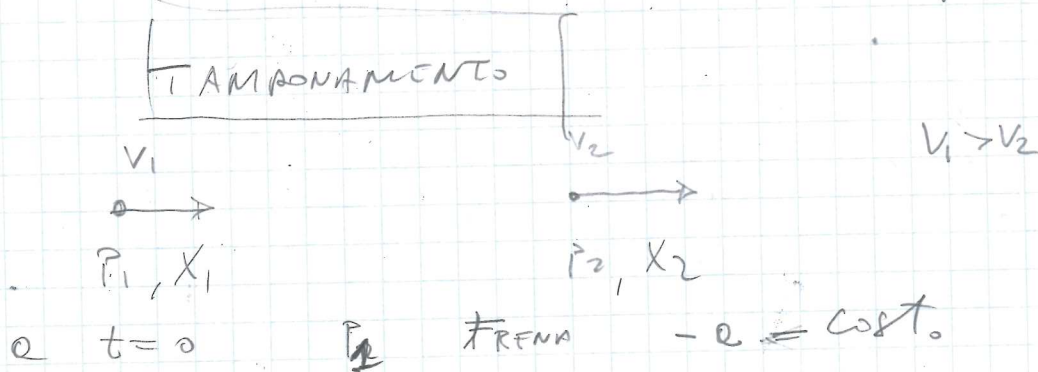 TAMPONAMENTO
V1 V2 V1 > V2
P1, X1 P2, X2
a t=0 P1 FRENA -a = COST.